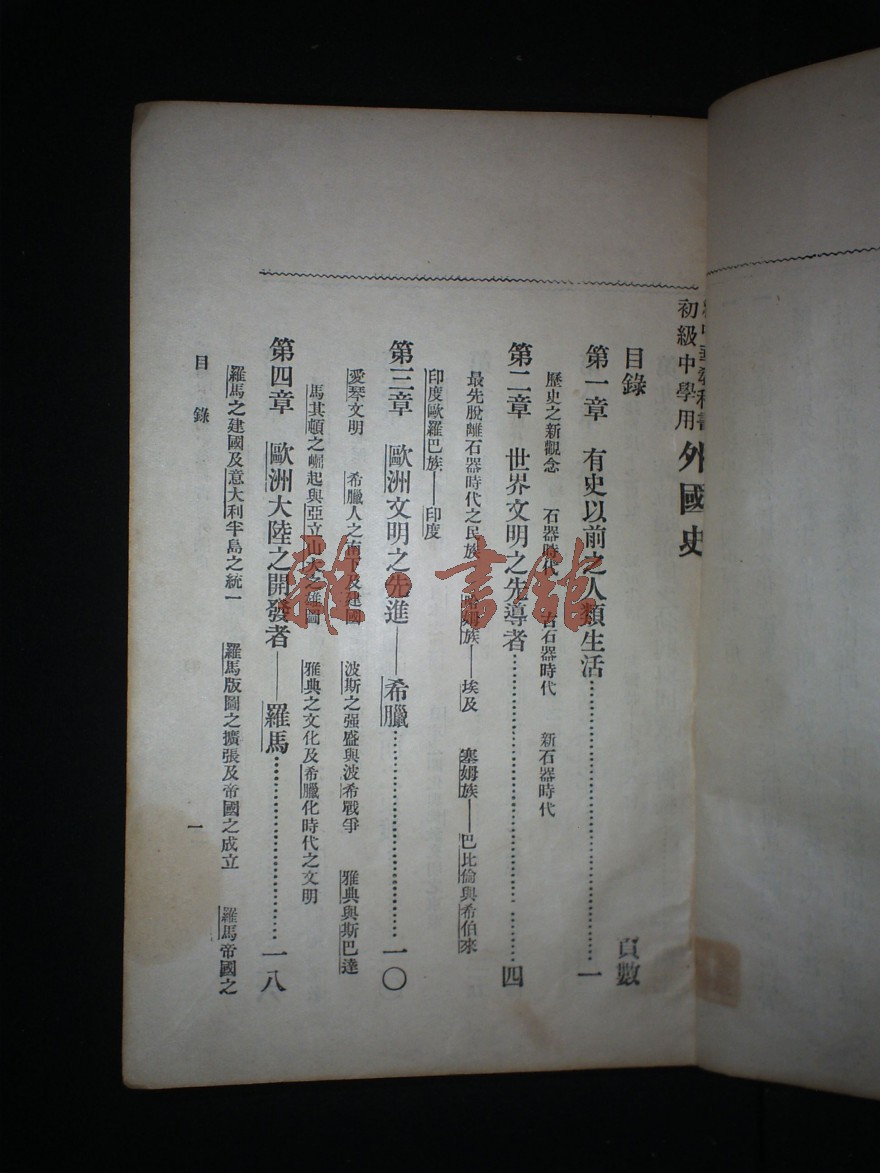 初級中學用
外國史
目錄
頁數
第一章 有史以前之人類生活……………………一
歷史之新觀念 石器時代 古石器時代 新石器時代
第二章 世界文明之先導者……………………四
最先脫離石器時代之民族 哈姆族——埃及 塞姆族——巴比倫與希伯來
印度歐羅巴族——印度
第三章 歐洲文明之先進——希臘……………………一〇
愛琴文明 希臘人之南下及建國 波斯之强盛與波希戰爭 雅典與斯巴達
馬其頓之崛起與亞立山大之雄圖 雅典之文化及希臘化時代之文明
第四章 歐洲大陸之開發者——羅馬……………………一八
羅馬之建國及意大利半島之統一 羅馬版圖之擴張及帝國之成立 羅馬帝國之
目錄
一
雜·書館